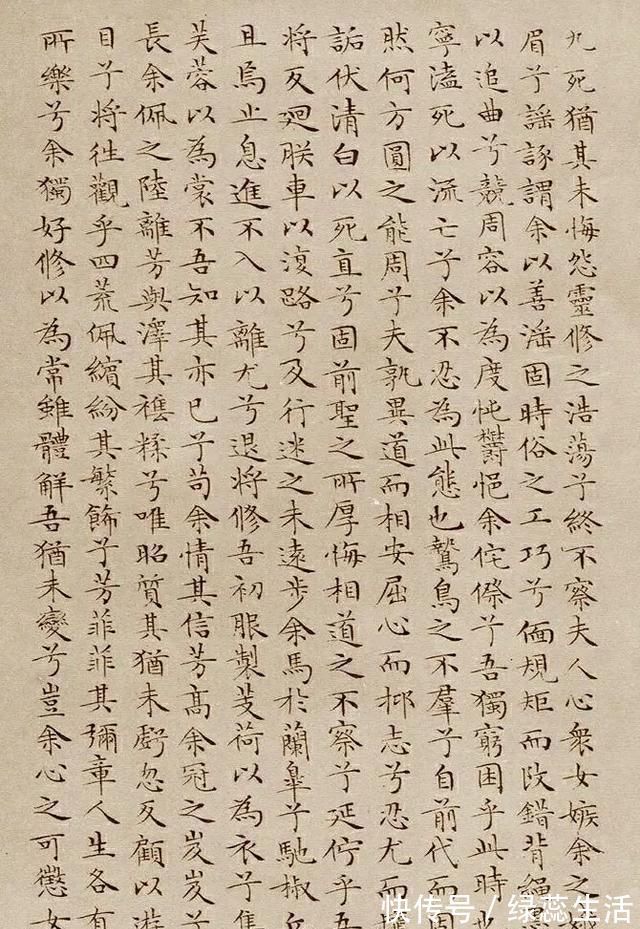 九死猶其未悔怨靈修之浩蕩兮終不察夫人心衆女嫉余之
眉兮謡諑謂余以善淫固時俗之工巧兮偭規矩而改錯背繩
以追曲兮競周容以為度忳鬱悒余侘傺兮吾獨窮困乎此時也
寧溘死以流亡兮余不忍為此態也鷙鳥之不羣兮自前代而固
然何方圓之能周兮夫孰異道而相安屈心而抑志兮忍尤而攘
詬伏清白以死直兮固前聖之所厚悔相道之不察兮延佇乎吾
將反迴朕車以復路兮及行迷之未遠步余馬於蘭皋兮馳椒丘
且焉止息進不入以離尤兮退將修吾初服製芰荷以為衣兮集
芙蓉以為裳不吾知其亦已兮苟余情其信芳高余冠之岌岌兮
長余佩之陸離芳與澤其襍糅兮唯昭質其猶未虧忽反顧以遊
目兮將往觀乎四荒佩繽紛其繁飾兮芳菲菲其彌章人生各有
所樂兮余獨好修以為常雖體解吾猶未變兮豈余心之可懲女
快传号/绿蕊生活